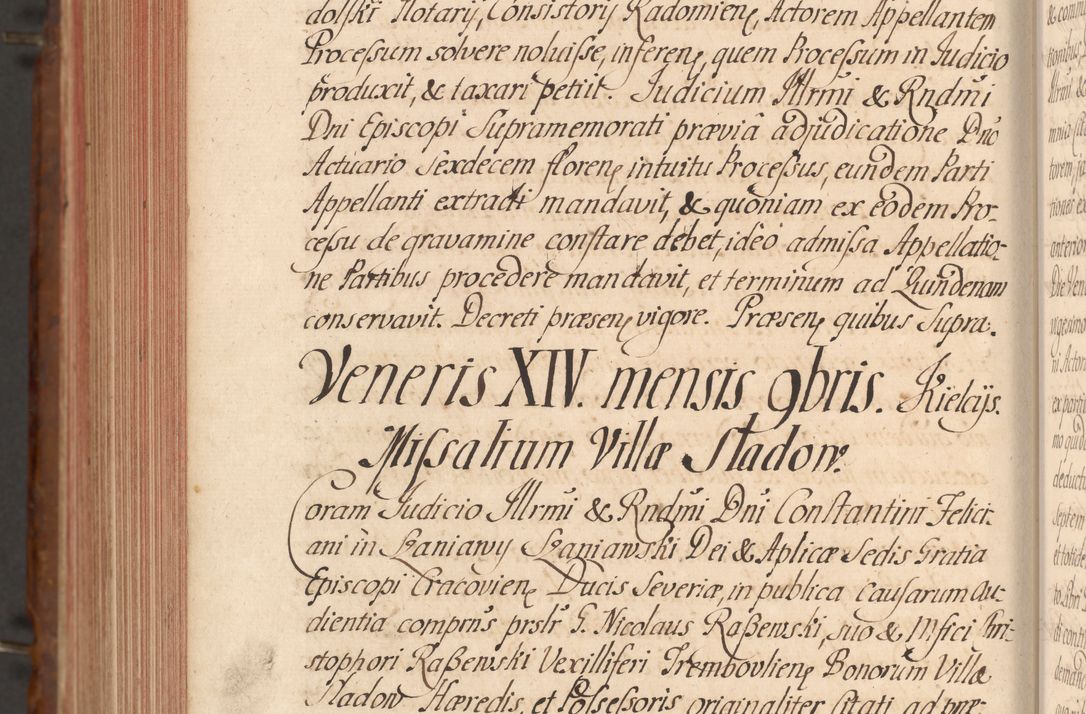 dolski Notarij, Consistorij Radomien, Actorem Appellantem
Processum solvere noluisse, inferen, quem Processum in Iudicio
produxit, & taxari petiit. Iudicium Illrmi & Rndmi
Dni Episcopi Supramemorati prævia adjudicatione Dno
Actuario Sexdecem floren, intuitu Processus, eundem Parti
Appellanti extradi mandavit, & quoniam ex eodem Pro-
cessu de gravamine constare debet, ideo admissa Appellatio-
ne Partibus procedere mandavit, et terminum ad Quindenam
conservavit. Decreti præsen, vigore. Præsen, quibus Supra.
Veneris XIV. mensis 9bris. Kielcijs.
Missalium Villæ Stadow.
Coram Iudicio Illrmi & Rndmi Dni Constantini Felici-
ani in Szaniawy Szaniawski Dei & Aplicæ Sedis Gratia
Episcopi Cracovien, Ducis Severiæ, in publica Causarum Au-
dientia comprns prslr G. Nicolaus Raßewski, suo & Mfici Chri-
stophori Raßewski Vexilliferi Trembovlien, Bonorum Villæ
Stadow Hæredis, et Possessoris originaliter Citati, ad præ-